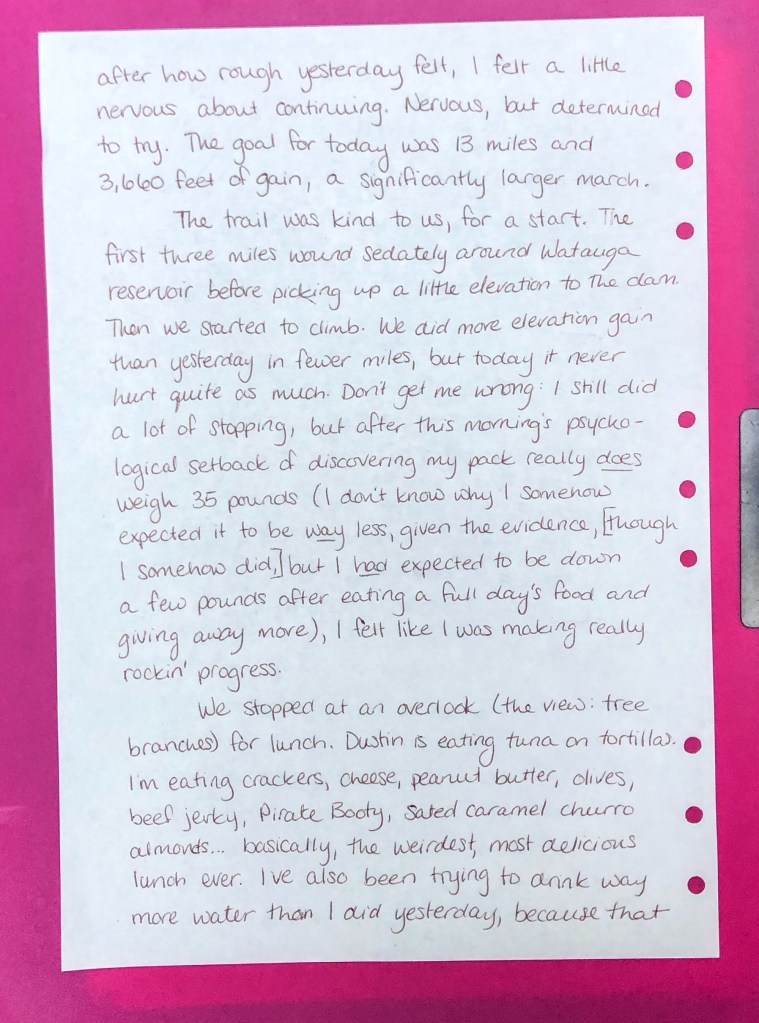 after how rough yesterday felt, I felt a little
nervous about continuing. Nervous, but determined
to try. The goal for today was 13 miles and
3,660 feet of gain, a significantly larger march.
The trail was kind to us, for a start. The
first three miles wound sedately around Watauga
reservoir before picking up a little elevation to the dam.
Then we started to climb. We did more elevation gain
than yesterday in fewer miles, but today it never
hurt quite as much. Don't get me wrong: I still did
a lot of stopping, but after this morning's psycho-
logical setback of discovering my pack really does
weigh 35 pounds (I don't know why I somehow
expected it to be way less, given the evidence, [though
I somehow did,] but I had expected to be down
a few pounds after eating a full day's food and
giving away more), I felt like I was making really
rockin' progress.
We stopped at an overlook (the view: tree
branches) for lunch. Dustin is eating tuna on tortillas.
I'm eating crackers, cheese, peanut butter, olives,
beef jerky, Pirate Booty, Salted caramel churro
almonds... basically, the weirdest, most delicious
lunch ever. I've also been trying to drink way
more water than I did yesterday, because that